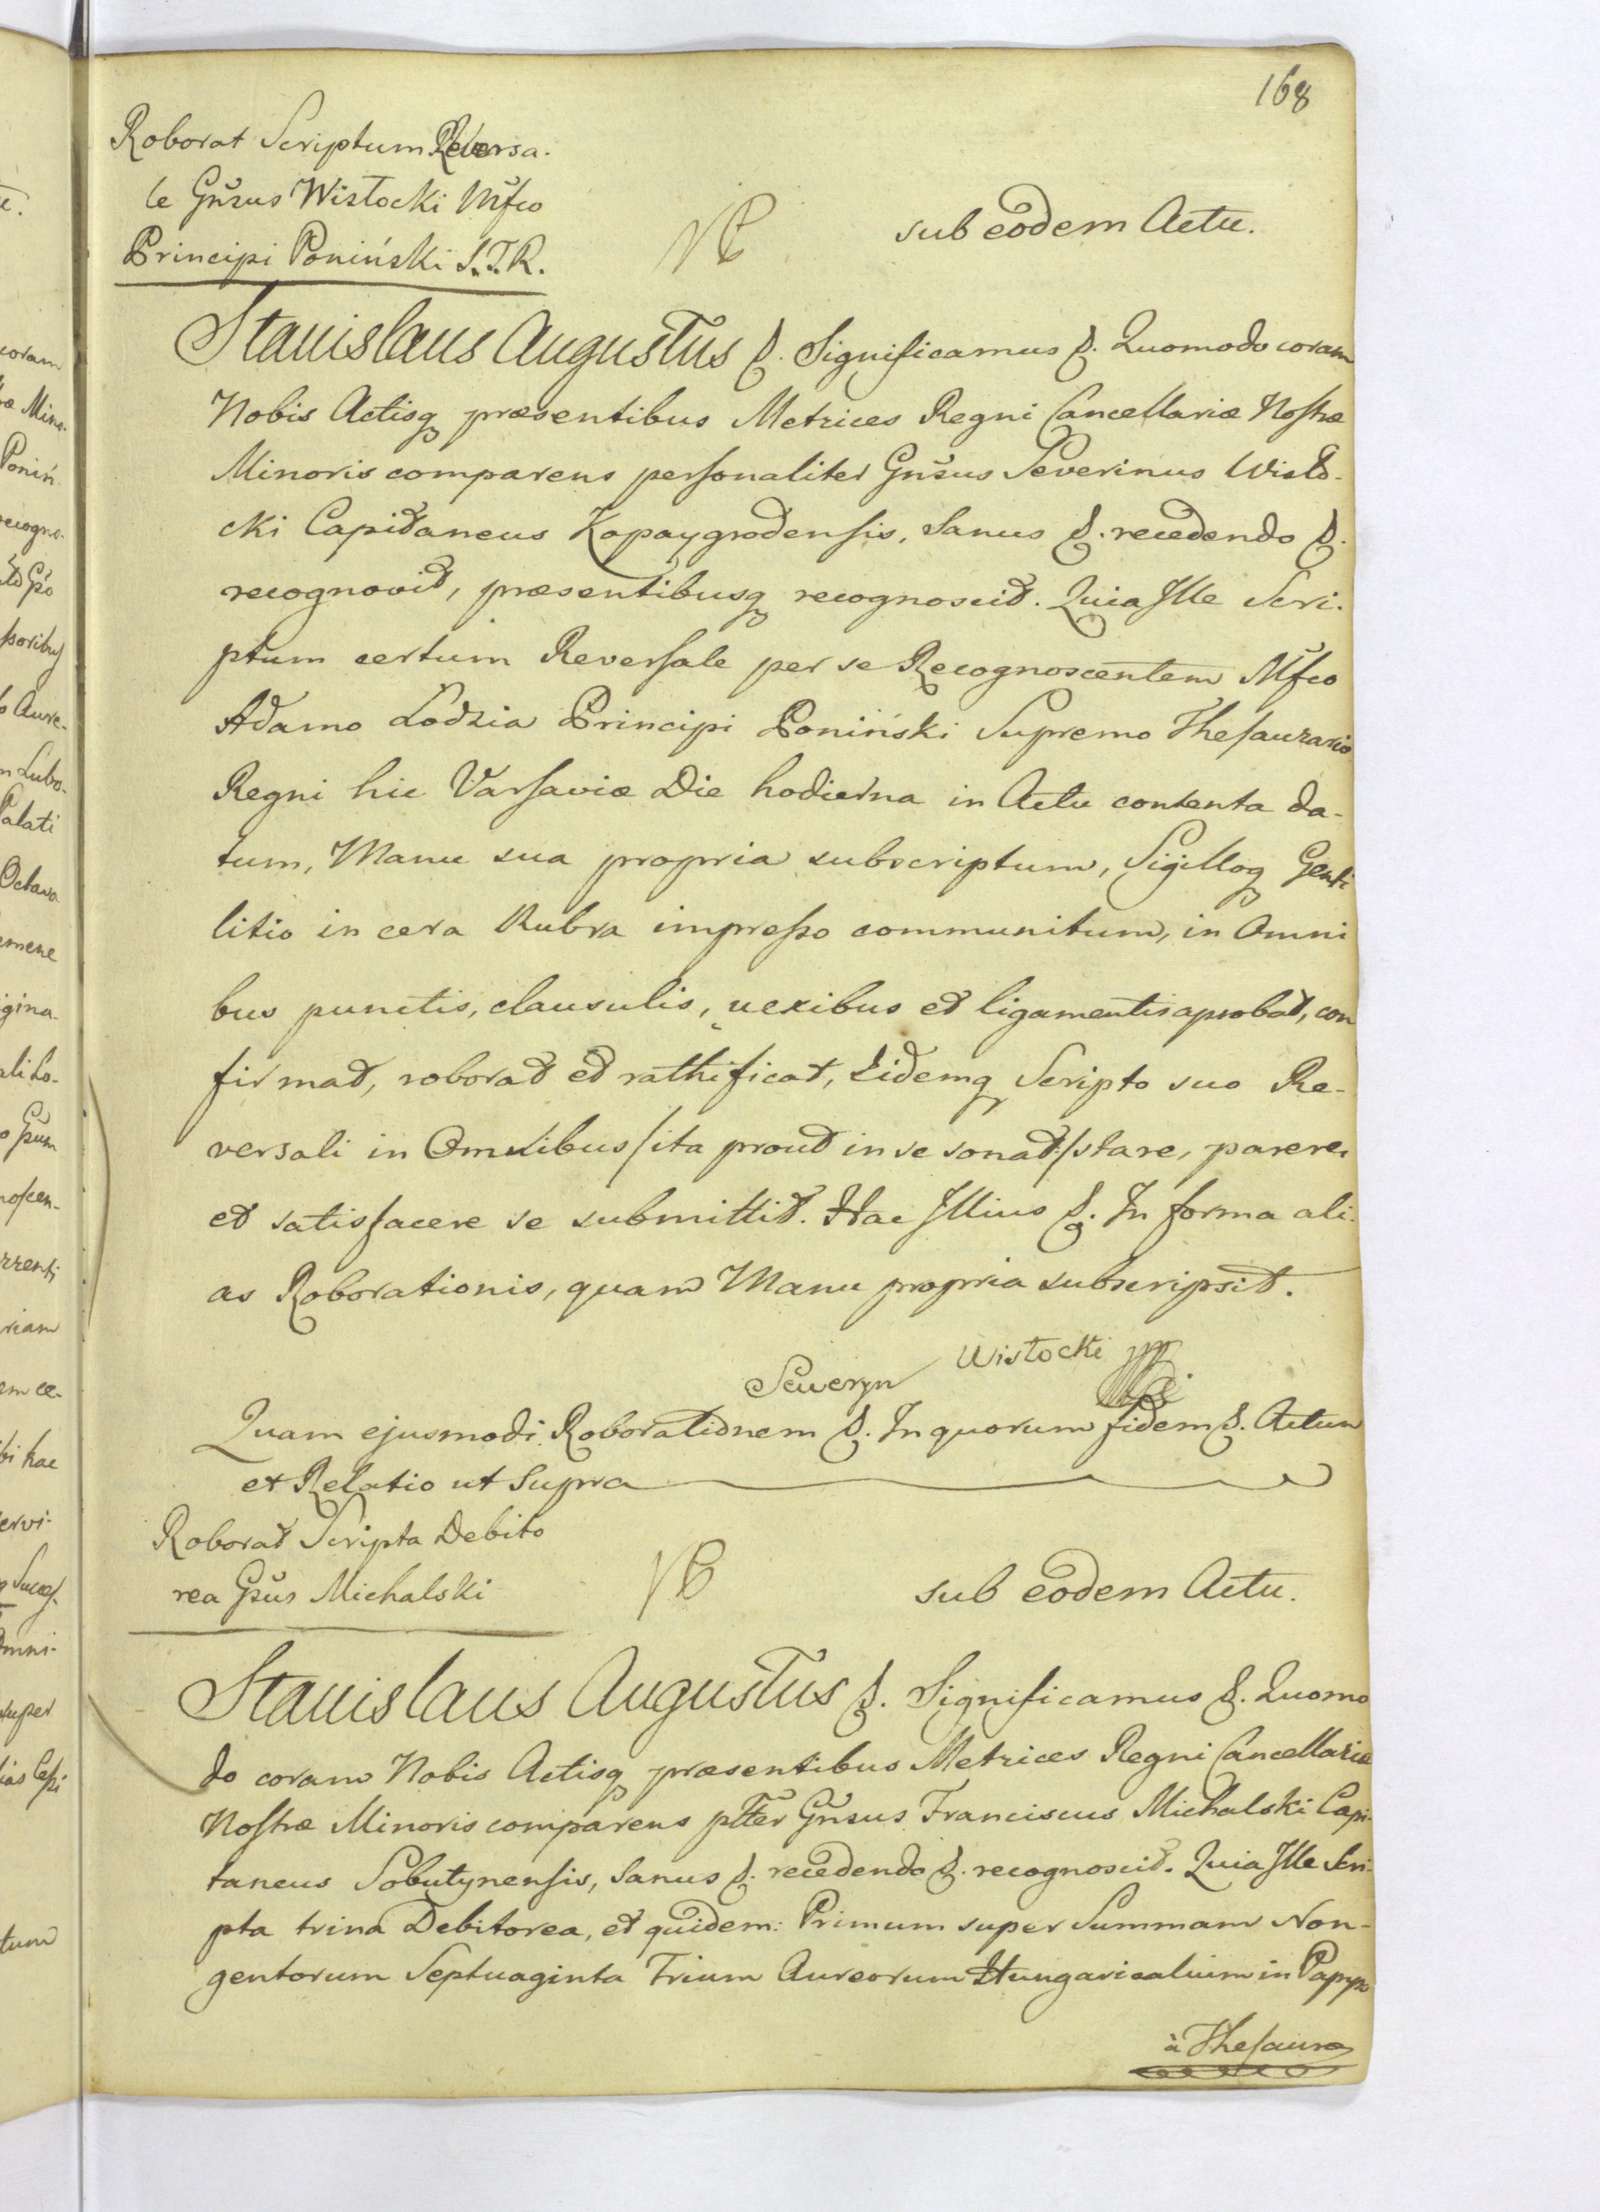 168
Roborat Scriptum Reversa-
le Gnsus Wisłocki Mfco
Principi Poniński S.T.R.
sub eodem Actu.
Stanislaus Augustus &. Significamus &. Quomodo coram
Nobis Actisq præsentibus Metrices Regni Cancellariæ Nostræ
Minoris comparens personaliter Gnsus Severinus Wisło-
cki Capitaneus Kopaygrodensis, Sanus &. recedendo &.
recognovit, præsentibusq recognoscit. Quia Ille Scri-
ptum certum Reversale per se Recognoscentem Mfco
Adamo Łodzia Principi Poniński Supremo Thesaurario
Regni hic Varsaviæ Die hodierna in Actu contenta da-
tum, Manu sua propria subscriptum, Sigilloq Genti
litio in cera Rubra impresso communitum, in Omni
bus punctis, clausulis, nexibus et ligamentis aprobat, con
firmat, roborat et rathificat, Eidemq Scripto suo Re-
versali in Omnibus /ita prout in se sonat/ stare, parere
et satisfacere se submittit. Hac Illius &. In forma ali-
as Roborationis, quam Manu propria subscripsit.
Seweryn Wisłocki
Quam ejusmodi Roborationem &. In quorum fidem &. Actum
et Relatio ut Supra
Roborat Scripta Debito
rea Gsus Michalski
sub eodem Actu.
Stanislaus Augustus &. Significamus &. Quomo
do coram Nobis Actisq præsentibus Metrices Regni Cancellariæ
Nostræ Minoris comparens pltter Gnsus Franciscus Michalski Capi-
taneus Sobutynensis, Sanus &. recedendo &. recognoscit. Quia Ille Scri-
pta trina Debitorea, et quidem: Primum super Summam Non-
gentorum Septuaginta Trium Aureorum Hungaricalium in
à Thesauro